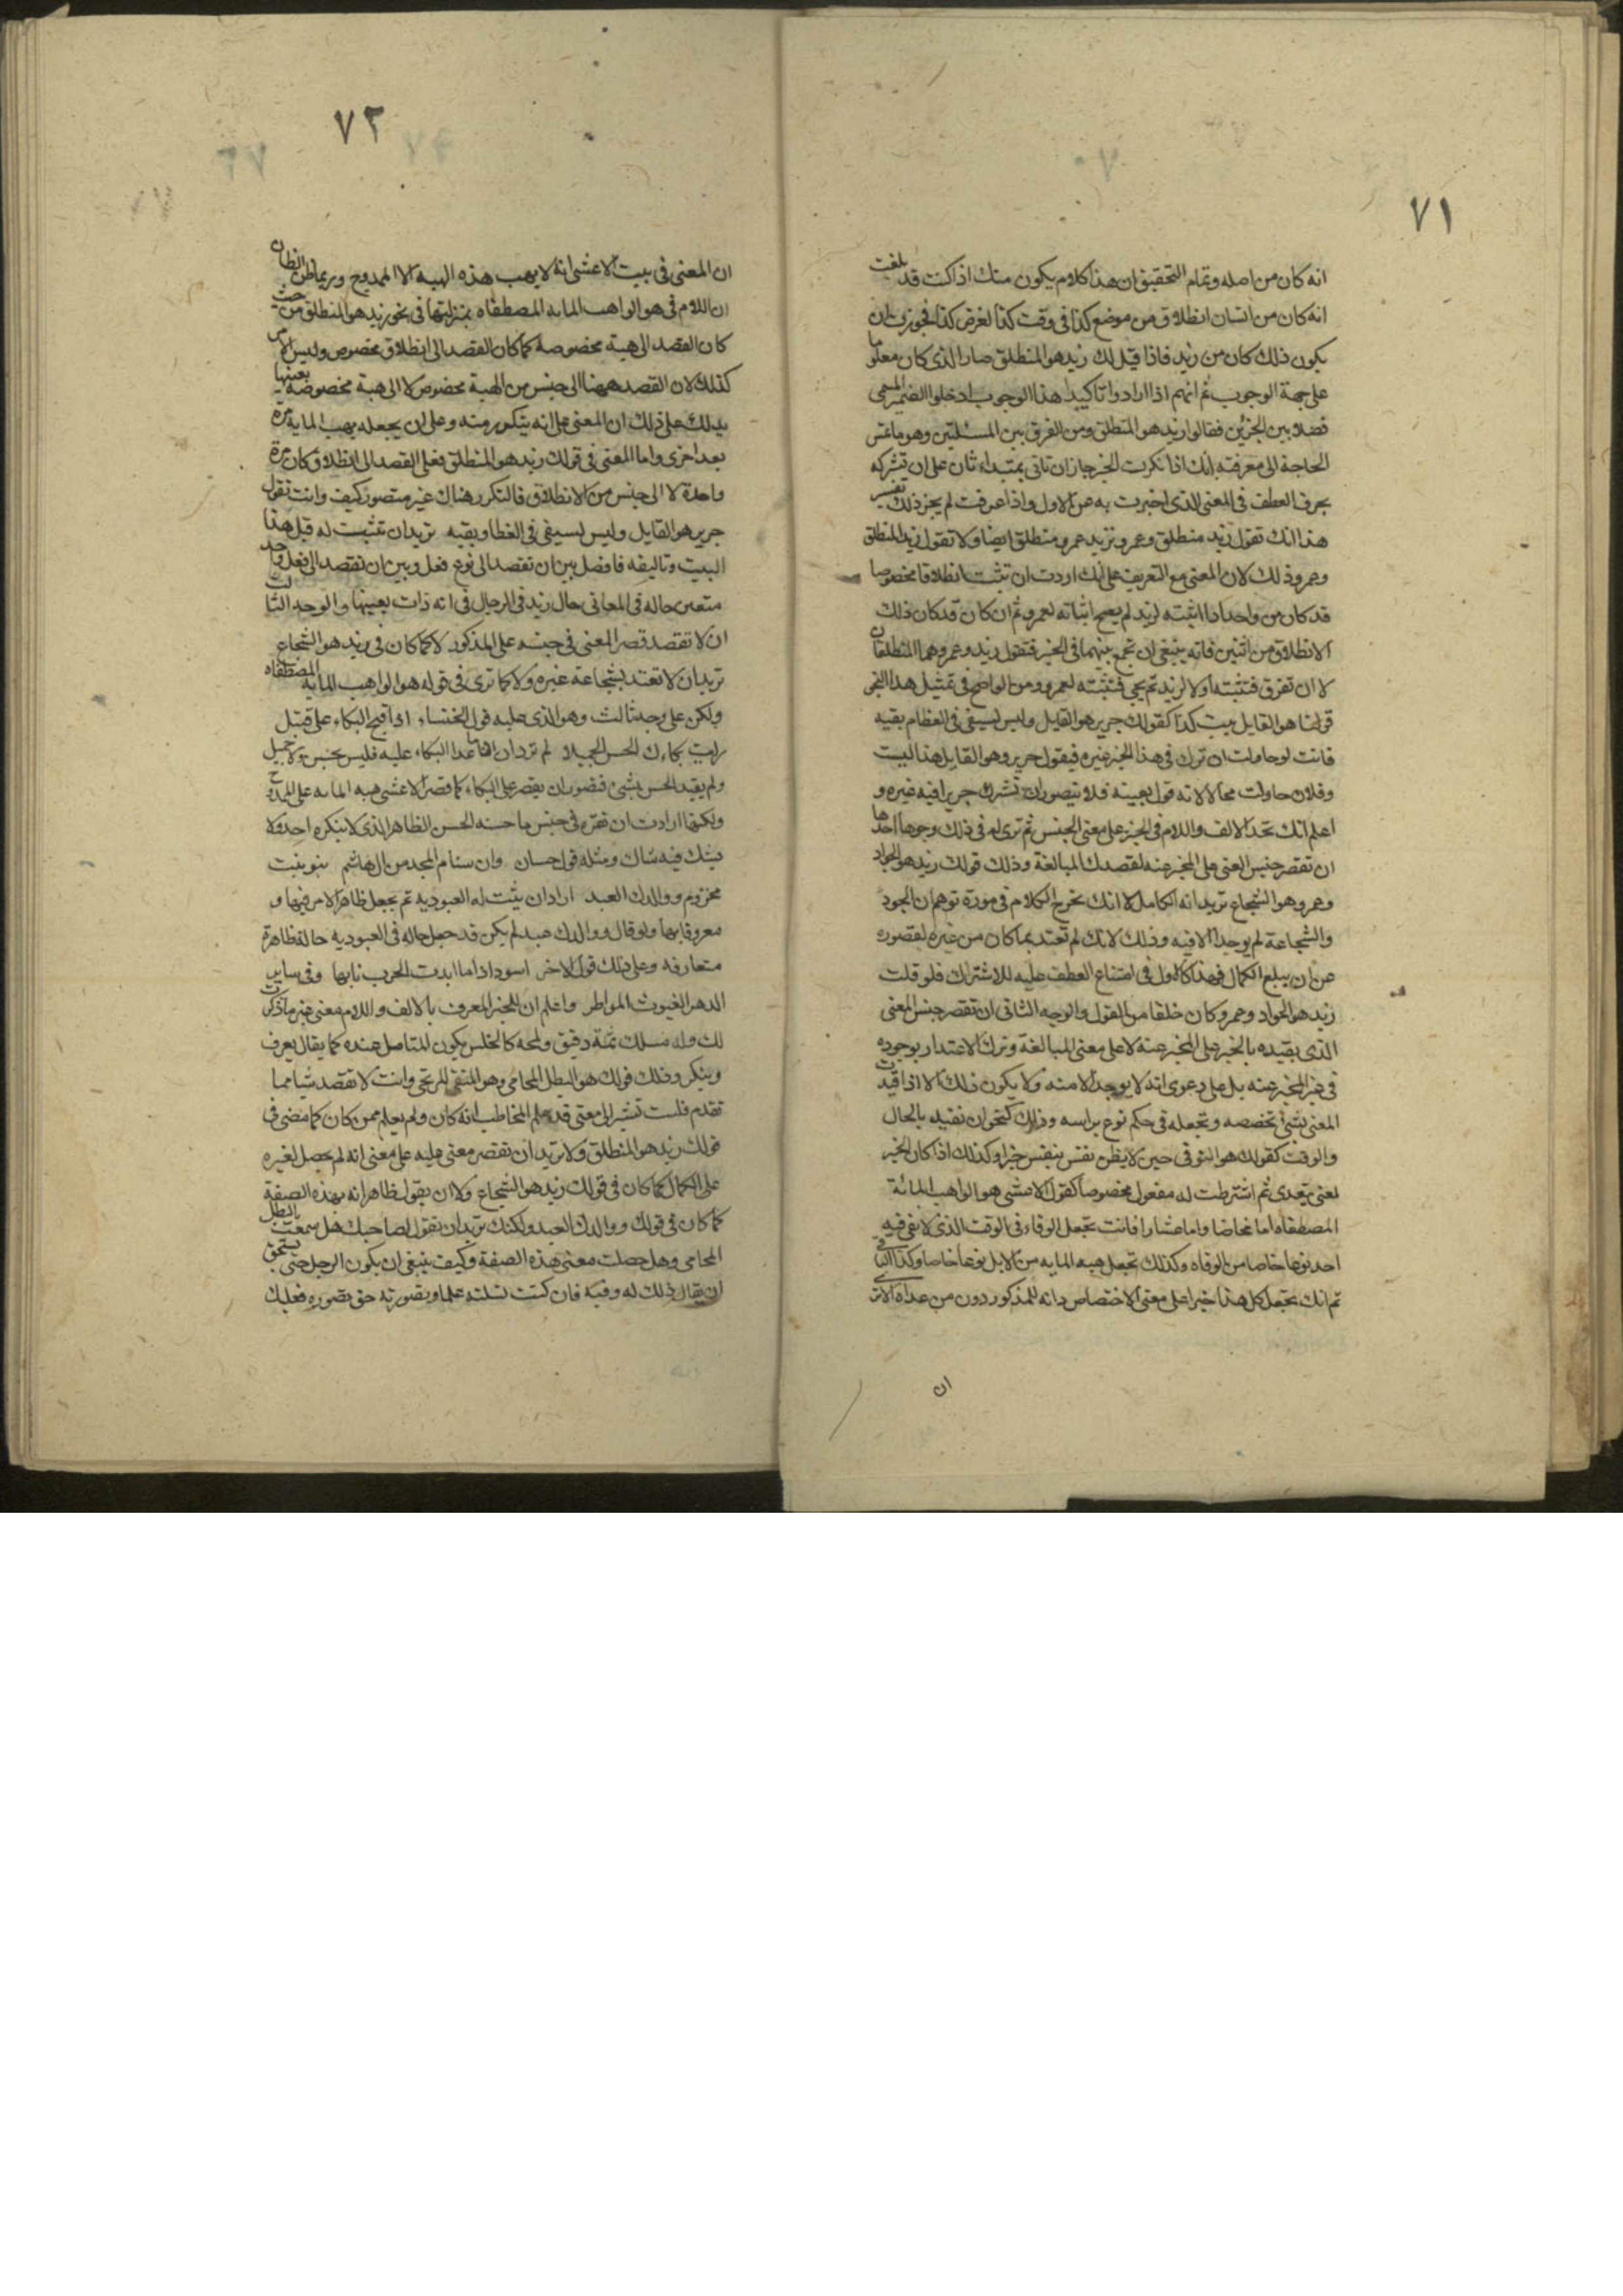 ٧١
انه كان من اصله وتمام التحقيق ان هذا كلام يكون منك اذا كنت قد بلغت
انه كان من انسان انطلاق من موضع كذا فى وقت كذا لغرض كذا فجوزت ان
يكون ذلك كان من زيد فاذا قيل لك زيد هو المنطلق صار الذى كان معلوما
على جهة الوجوب ثم انهم اذا ارادوا تاكيد هذا الوجوب ادخلوا الضمير المسمى
فضلا بين الجزئين فقالوا زيد هو المنطلق ومن الفرق بين المسئلتين وهو ما تمس
الحاجة الى معرفته انك اذا نكرت الخبر جاز ان تاتى بمبتداء ثان على ان تشركه
بحرف العطف فى المعنى الذى اخبرت به عن الاول واذا عرفت لم يجز ذلك تفسير
هذا انك تقول زيد منطلق وعمرو تريد عمرو منطلق ايضا ولا تقول زيد المنطلق
وعمرو ذلك لان المعنى مع التعريف على انك اردت ان تثبت انطلاقا مخصوصا
قد كان من واحد اذا اثبته لزيد لم يصح اثباته لعمرو ثم ان كان قد كان ذلك
الانطلاق من اثنين فانه ينبغى ان تجمع بينهما فى الخبر فتقول زيد وعمرو هما المنطلقان
لا ان تفرق فتثبته اولا لزيد ثم يجى فتثبته لعمرو ومن الواضح فى تمثيل هذا النحو
قولنا هو القايل بيت كذا كقولك جرير هو القايل وليس لسيفى فى العظام بقيه
فانت لو حاولت ان تشرك فى هذا الخبر غيره فيقول جرير وهو القايل هذا البيت
وفلان حاولت محالا لانه قول بعينه فلا يتصور ان تشرك جريرا فيه غيره و
اعلم انك تجد الالف واللام فى الخبر على معنى الجنس ثم ترى له فى ذلك وجوها احدها
ان تقصر جنس المعنى على المخبر عنه لقصدك المبالغة وذلك قولك زيد هو الجواد
وعمرو هو الشجاع تريد انه الكامل الا انك تخرج الكلام فى صورة توهم ان الجود
والشجاعة لم يوجد الا فيه وذلك لانك لم تعتد بما كان من غيره لقصوره
عن ان يبلغ الكمال فهذا كالاول فى امتناع العطف عليه للاشتراك فلو قلت
زيد هو الجواد وعمرو كان خلفا من القول والوجه الثانى ان تقصر جنس المعنى
الذى يفيده بالخبر على المخبر عنه لا على معنى المبالغة وترك الاعتداد بوجوده
فى غير المخبر عنه بل على دعوى انه لا يوجد الا منه ولا يكون ذلك الا اذا قيدت
المعنى بشئ تخصصه وتجعله فى حكم نوع براسه وذلك كنحو ان تقيد بالحال
والوقت كقولك هو الوفى حين لا يظن نفس بنفس خيرا وكذلك اذا كان الخبر
لمعنى يتعدى ثم اشترطت له مفعول مخصوصا كقول الاعشى هو الواهب المائة
المصطفاة اما مخاضا واما عشارا فانت تجعل الوفاء فى الوقت الذى لا يفى فيه
احد نوعا خاصا من الوفاء وكذلك تجعل هبه المايه من الابل نوعا خاصا وكذا الباقى
ثم انك تجعل كل هذا خبرا على معنى الاختصاص وانه للمذكور دون من عداه الا ترى
ان
٧٢
ان المعنى فى بيت الاعشى انه لا يهب هذه الهبه الا الممدوح وربما ظن الظان
ان اللام فى هو الواهب المايه المصطفاه بمنزلتها فى نحو زيد هو المنطلق من حيث
كان القصد الى هبة مخصوصة كما كان القصد الى انطلاق مخصوص وليس الامر
كذلك لان القصد ههنا الى جنس من الهبة مخصوص لا الى هبة مخصوصة بعينها
يدلك على ذلك ان المعنى على انه يتكرر منه وعلى ان يجعله يهب المايه مرة
بعد اخرى واما المعنى فى قولك زيد هو المنطلق فعلى القصد الى انطلاق كان مرة
واحدة لا الى جنس من الانطلاق فالتكرر هناك غير متصور كيف وانت تقول
جرير هو القايل وليس لسيفى فى العظام بقيه تريد ان تثبت له قيل هذا
البيت وتاليفه فافصل بين ان تقصد الى نوع فعل وبين ان تقصد الى فعل واحد
متعين حاله فى المعانى حال زيد فى الرجال فى انه ذات بعينها والوجه الثالث
ان لا تقصد قصر المعنى فى جنسه على المذكور لا كما كان فى زيد هو الشجاع
تريد ان لا تعتد بشجاعة غيره ولا كما ترى فى قوله هو الواهب المايه المصطفاه
ولكن على وجه ثالث وهو الذى عليه قول الخنساء اذا قبح البكاء على قتيل
رايت بكاءك الحسن الجميلا لم ترد ان ما عدا البكاء عليه فليس بحسن ولا جميل
ولم يقيد الحسن بشئ فتصور ان يقصر على البكاء كما قصر الاعشى هبه المايه على الممدوح
ولكنها ارادت ان تقره فى جنس ما حسنه الحسن الظاهر الذى لا ينكره احد ولا
يشك فيه شاك ومثله قول حسان وان سنام المجد من ال هاشم بنو بنت
مخزوم ووالدك العبد اراد ان يثبت له العبوديه ثم يجعل ظاهر الامر فيها و
معروفا بها ولو قال ووالدك عبد لم يكن قد جعل حاله فى العبوديه حالة ظاهرة
متعارفه وعلى ذلك قول الاخر اسود اذا ما ابدت الحرب نابها وفى ساير
الدهر الغيوث المواطر واعلم ان للخبر المعرف بالالف واللام معنى غير ما ذكرت
لك وله مسلك ثمة دقيق ولمحه كالخلس يكون المتامل عنده كما يقال يعرف
وينكر وذلك قولك هو البطل المحامى وهو المتقى المرتجى وانت لا تقصد شيا مما
تقدم فلست تشير الى معنى قد علم المخاطب انه كان ولم يعلم ممن كان كما مضى فى
قولك زيد هو المنطلق ولا تريد ان تقصر معنى عليه على معنى انه لم يحصل لغيره
على الكمال كما كان فى قولك زيد هو الشجاع ولا ان يقول ظاهر انه بهذه الصفة
كما كان فى قولك ووالدك العبد ولكنك تريد ان تقول لصاحبك هل سمعت بالبطل
المحامى وهل حصلت معنى هذه الصفة وكيف ينبغى ان يكون الرجل حتى يستحق
ان يقال ذلك له وفيه فان كنت قتلته علما وتصورته حق تصوره فعليك